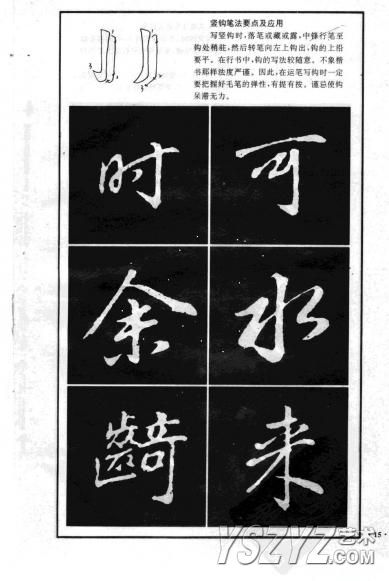 竖钩笔法要点及应用
写竖钩时,落笔或藏或露,中锋行笔至
钩处稍驻,然后转笔向左上钩出,钩的上沿
要平。在行书中,钩的写法较随意。不象楷
书那样法度严谨。因此,在运笔写钩时一定
要把握好毛笔的弹性,有提有按。谨忌使钩
呆滞无力。
时 可
余 水
齮 来
·15·
YSZYZ艺术